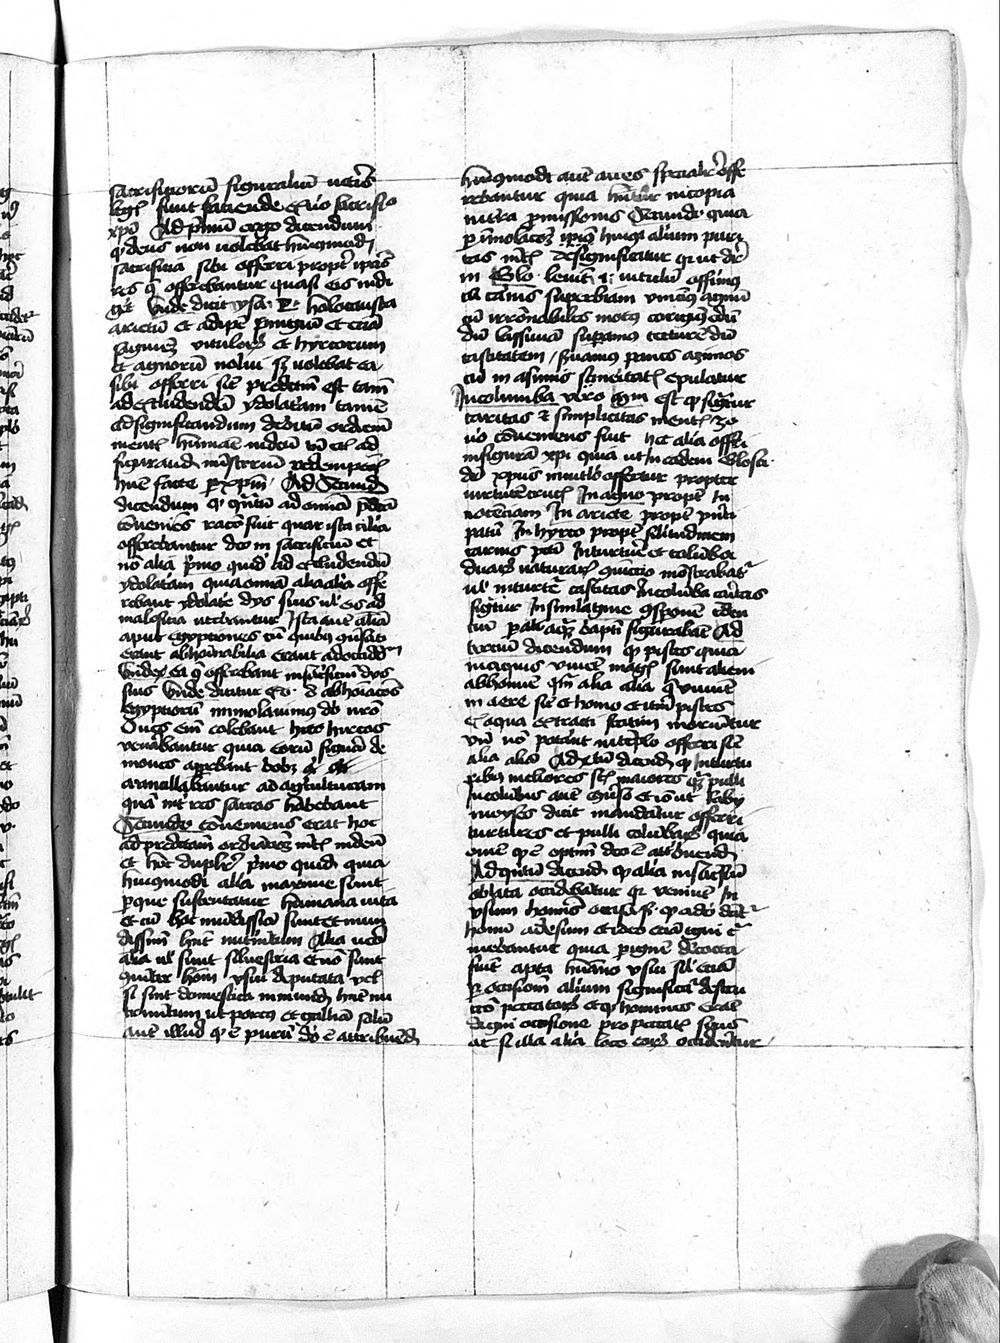 sacrificiorum figuralium veteris
legis sunt faciende ex vero sacrificio
xpi Ad primum ergo dicendum
quod deus non volebat huiusmodi
sacrificia sibi offerri propter ipsas
res que offerebantur quasi eis indi
geret Unde dicit ysa. 1. holocausta
arietum et adipem pinguium et
sanguinem vitulorum et hyrcorum
et agnorum nolui sed volebat ea
sibi offerri sicut predictum est tam
ad excludendum ydolatriam tum
ad significandum debitum ordinem
mentis humane in deum tum etiam ad
figurandum misterium redemptionis
humane facte per xpm Ad Secundum
dicendum quod quantum ad omnia predicta
conveniens ratio fuit quare ista alia
offerebantur deo in sacrificium et
non alia primo quidem ad excludendum
ydolatriam quia omnia alia alia offe
rebant ydolatre dys suis vel eis ad
maleficia utebantur Ista autem alia
aput egyptiones cum quibus conversati
erant abhominabilia erant ad occidendum
Unde ea non offerebant in sacrificium dys
suis Unde dicitur exo. 8 abhominationes
egyptiorum immolavimus deo nostro
Oves enim colebant hircos
venerabantur quia eorum figura de
mones apparebant bobus
ancillabantur ad agriculturam
quam inter res sacras habebant
Secundo conveniens erat hoc
ad predictam ordinationem mentis in deum
et hoc dupliciter primo quidem quia
huiusmodi alia maxime sunt
per que sustentatur humana vita
et cum hoc mundissima sunt et mun
dissimum habent nutrimentum Alia vero
alia vel sunt silvestria et non sunt
communiter hominum usui deputata vel
si sunt domestica inmundum habent nu
trimentum ut porcus et gallina solum
autem illud quod est purum deo est attribuendum
huiusmodi autem aves specialiter offe
rebantur quia habentur in copia
in terra promissionis Secundo quia
per immolationem huiusmodi alium puri
tas mentis designificatur quia ut dicitur
in Glo. levit. 1. vitulum offerimus
cum carnis superbiam vincimus agnum
cum irrationabiles motus corrigimus edum
dum lasciviam superamus turturem dum
castitatem servamus panes azimos
cum in asimis sinceritatis epulamur
In columba vero est quod significatur
caritas et simplicitas mentis 3o
vero conveniens fuit hec alia offerri
in figuram xpi quia ut in eadem Glosa
dicitur xpus in vitulo offertur propter
virtutem crucis In agno propter in
nocenciam In ariete propter princi
patum In hyrco propter similitudinem
carnis peccati In turture et columba
duarum naturarum coniunctio monstrabatur
vel in turture castitas In columba caritas
significatur In similagine aspersio creden
tium per aquam baptismi figurabatur Ad
tercium dicendum quod pisces quia
in aquis vivunt magis sunt alieni
ab homine quam alia alia que vivunt
in aere sicut et homo et iterum pisces
ex aqua extracti statim moriuntur
unde non poterant in templo offerri sicut
alia alia Ad quartum dicendum quod in turtu
ribus meliores sunt maiores quam pulli
In columbis autem e converso et ideo ut Raby
moyses dicit mandantur offerri
turtures et pulli columbarum quia
omne quod est optimum deo est attribuendum
Ad quintum dicendum quod alia in sacrificium
oblata occidebantur quia veniunt in
usum hominis occisa secundum quod a deo dantur
homini ad esum et ideo etiam igni cre
mabantur quia per ignem decocta
fiunt apta humano usui similiter etiam
per occisionem alium significatur destru
ctio peccatorum et quod homines erant
digni occisione pro peccatis suis
ac si illa alia loco eorum occiderentur